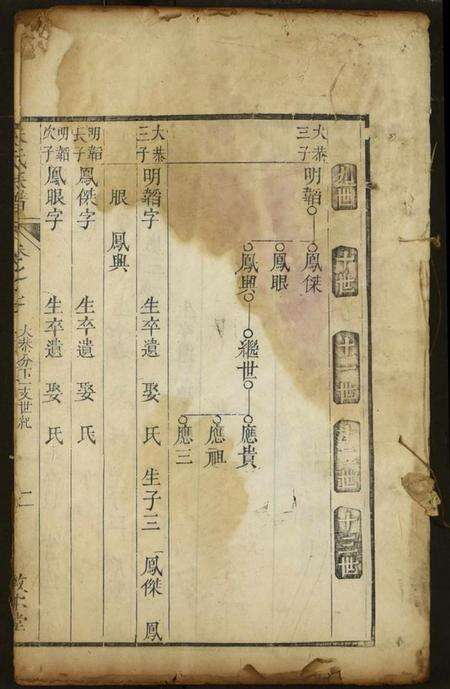 九世 十世 十一世 十二世 十三世
大恭三子 明韜 鳳傑
鳳眼
鳳興 繼世 應貴
應祖
應三
大恭三子 明韜字 生卒遺 娶 氏 生子三 鳳傑 鳳
眼 鳳興
明韜長子 鳳傑字 生卒遺 娶 氏
明韜次子 鳳眼字 生卒遺 娶 氏
氏族譜 大恭分下 支世紀 二 敦本堂